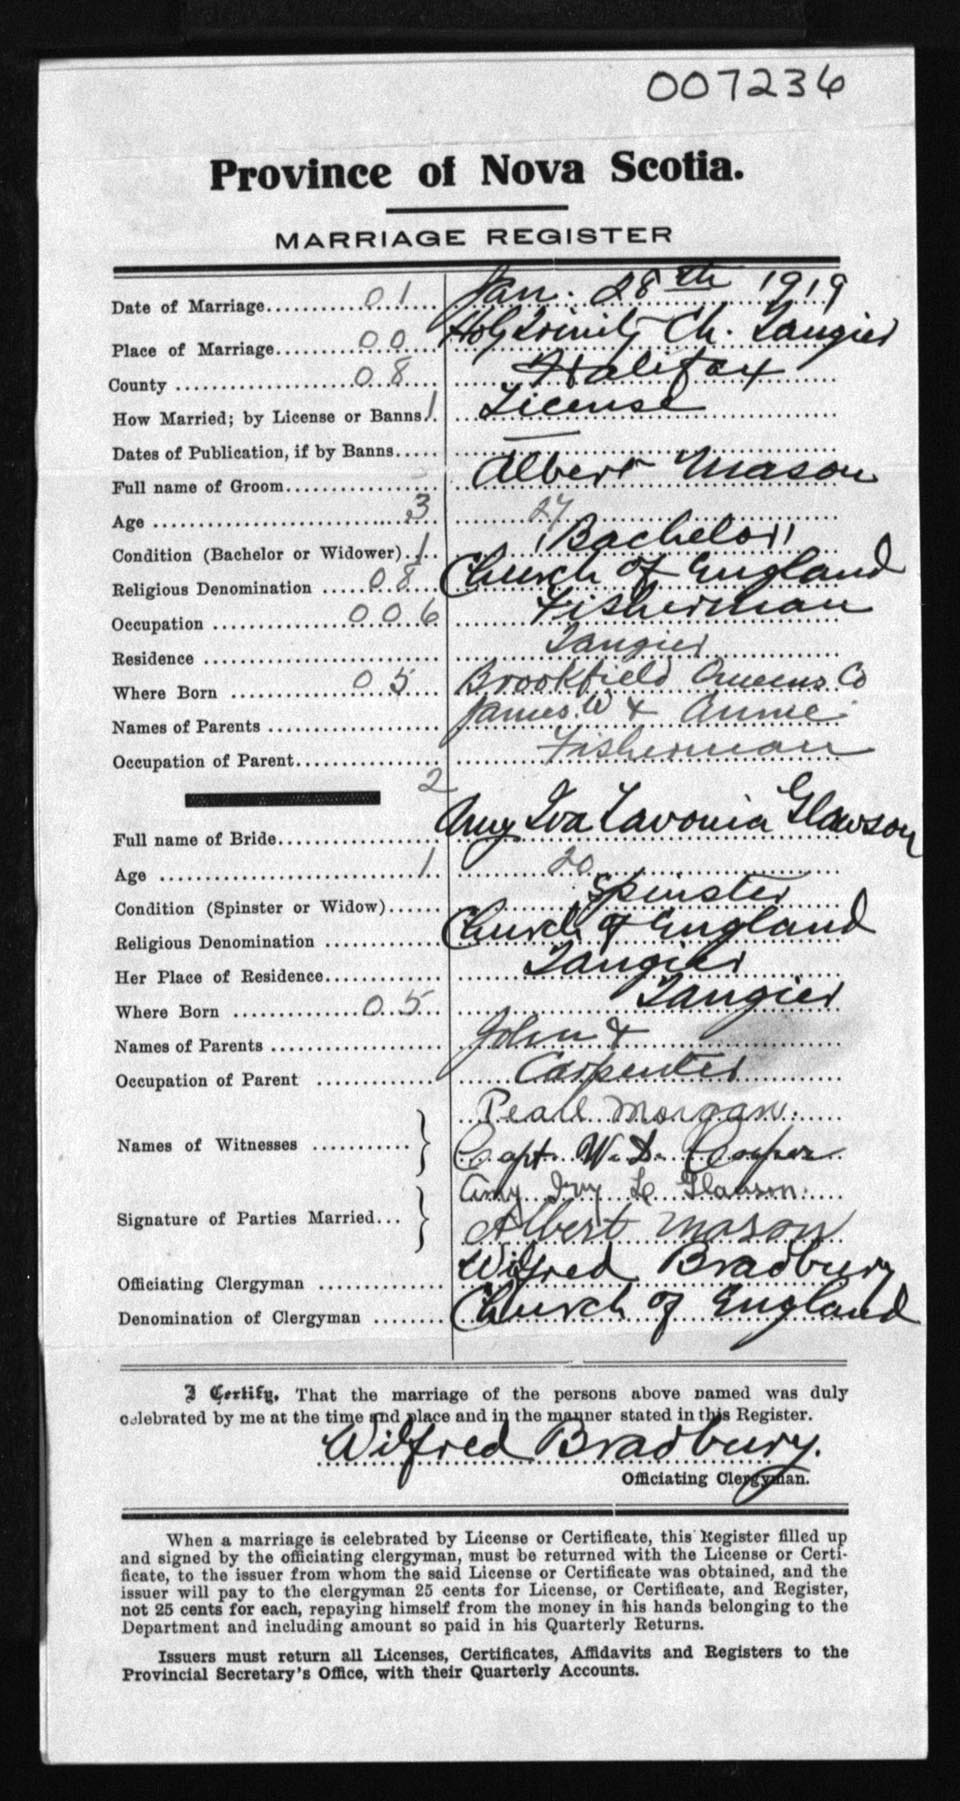 007236
Province of Nova Scotia.
MARRIAGE REGISTER
Date of Marriage 01 Jan. 28th 1919
Place of Marriage 00 Holy Trinity Ch. Tangier
County 08 Halifax
How Married; by License or Banns 1 License
Dates of Publication, if by Banns —
Full name of Groom Albert Mason
Age 3 27
Condition (Bachelor or Widower) 1 Bachelor
Religious Denomination 08 Church of England
Occupation 006 Fisherman
Residence Tangier
Where Born 05 Brookfield Queens Co
Names of Parents James W & Annie
Occupation of Parent Fisherman
2
Full name of Bride Amy Iva Lavonia Glawson
Age 1 20
Condition (Spinster or Widow) Spinster
Religious Denomination Church of England
Her Place of Residence Tangier
Where Born 05 Tangier
Names of Parents John &
Occupation of Parent Carpenter
Pearl Morgan
Names of Witnesses
Capt. W. D. Cooper
Amy Ivy L Glawson
Signature of Parties Married
Albert Mason
Officiating Clergyman Wilfred Bradbury
Denomination of Clergyman Church of England
I Certify, That the marriage of the persons above named was duly
celebrated by me at the time and place and in the manner stated in this Register.
Wilfred Bradbury.
Officiating Clergyman.
When a marriage is celebrated by License or Certificate, this Register filled up
and signed by the officiating clergyman, must be returned with the License or Certi-
ficate, to the issuer from whom the said License or Certificate was obtained, and the
issuer will pay to the clergyman 25 cents for License, or Certificate, and Register,
not 25 cents for each, repaying himself from the money in his hands belonging to the
Department and including amount so paid in his Quarterly Returns.
Issuers must return all Licenses, Certificates, Affidavits and Registers to the
Provincial Secretary's Office, with their Quarterly Accounts.